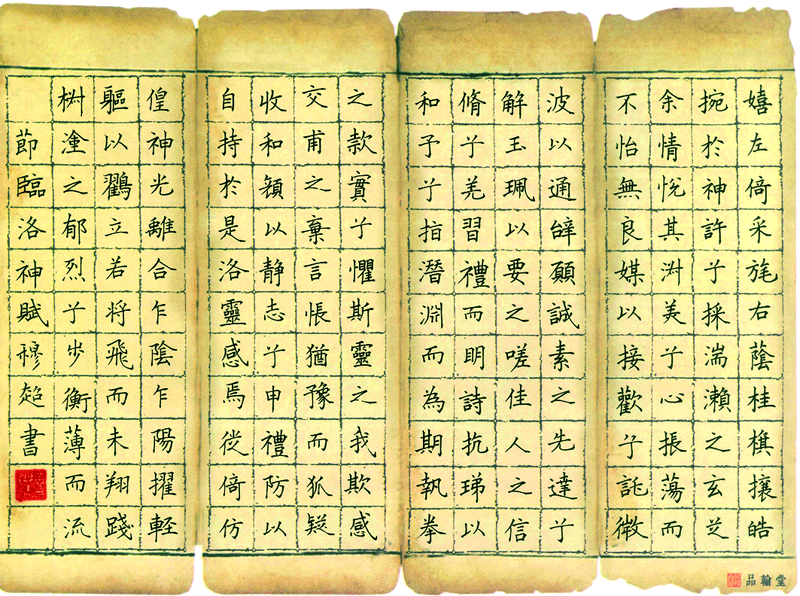 嬉左倚采旄右蔭桂旗攘皓
捥於神許兮採湍瀨之玄芝
余情悅其淑美兮心振蕩而
不怡無良媒以接歡兮託微
波以通辭願誠素之先達兮
解玉珮以要之嗟佳人之信
脩兮羌習禮而明詩抗珶以
和予兮指潛淵而為期執拳
之款實兮懼斯靈之我欺感
交甫之棄言悵猶豫而狐疑
收和顏以静志兮申禮防以
自持於是洛靈感焉徙倚仿
偟神光離合乍陰乍陽擢輕
軀以鸖立若将飛而未翔踐
椒塗之郁烈兮步衡薄而流
節臨洛神賦穆超書
品翰堂